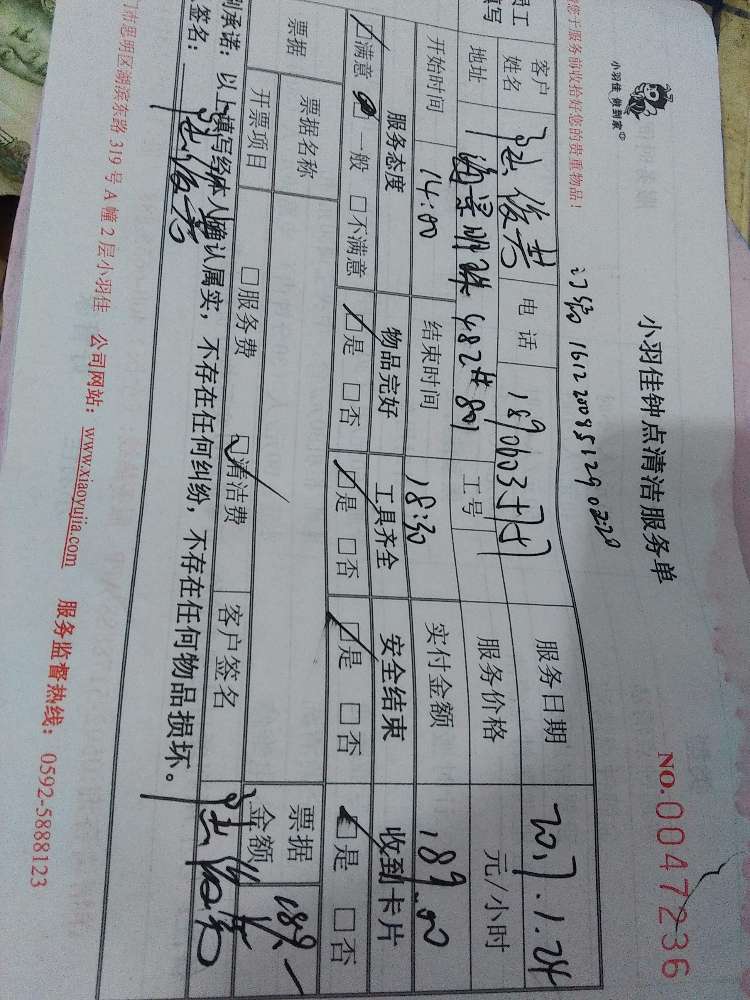 小羽佳 做到家
小羽佳钟点清洁服务单
NO.0047236
您于服务前收拾好您的贵重物品！
订编 16122009512902:20
员工
填写
客户
姓名
俊
电话
服务日期
2017.1.24
地址
海景明珠 482#801
工号
服务价格
元/小时
开始时间
14:00
结束时间
18:30
实付金额
189.00
服务态度
物品完好
工具齐全
安全结束
收到卡片
☑满意 □一般 □不满意
☑是 □否
☑是 □否
☑是 □否
☑是 □否
票据
票据名称
开票项目
□服务费 ☑清洁费
客户签名
票据
金额
189.-
别承诺：以上填写经本人确认属实，不存在任何纠纷，不存在任何物品损坏。
签名：
门市思明区湖滨东路 319 号 A 幢 2 层小羽佳 公司网站：www.xiaoyujia.com 服务监督热线：0592-5888123